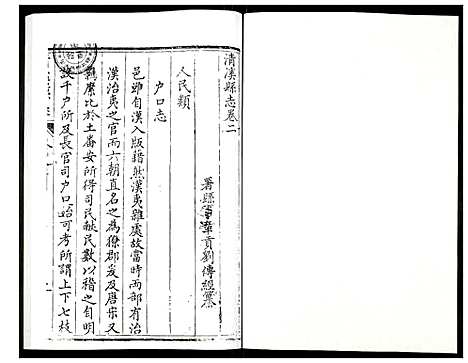 清溪縣志卷二
署縣事章貢劉傳經纂
人民類
户口志
邑雖自漢入版籍然漢夷雜處故當時两部有治
漢治夷之官而六朝直名之為獠郡爰及唐宋又
羈縻比於土畨安所得司民獻民數以稽之自明
設千户所及長官司户口始可考所謂上下七枝